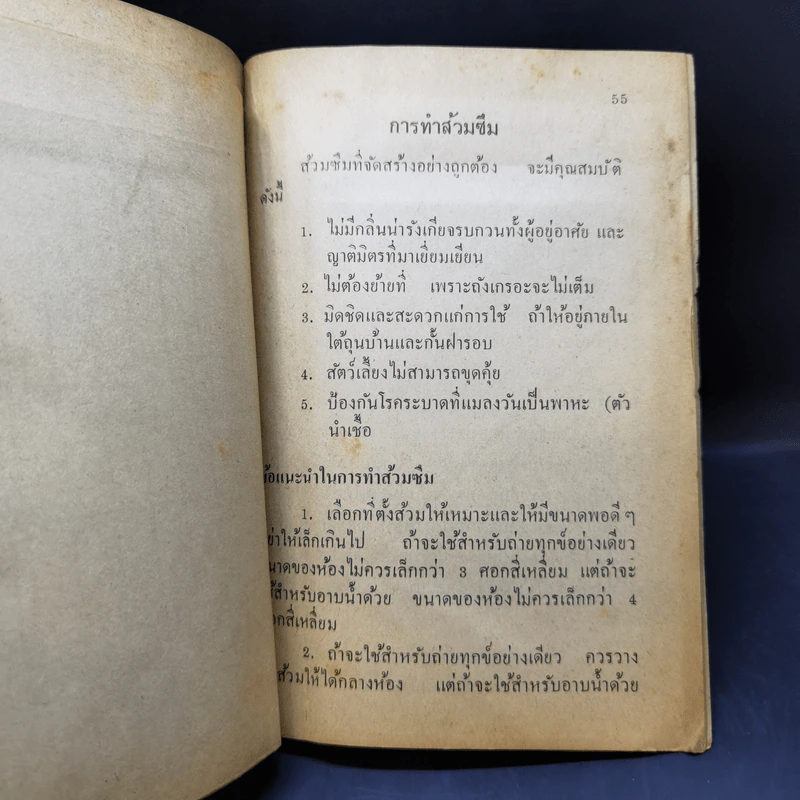 55
การทำส้วมซึม
ส้วมซึมที่จัดสร้างอย่างถูกต้อง จะมีคุณสมบัติ
ดังนี้
1. ไม่มีกลิ่นน่ารังเกียจรบกวนทั้งผู้อยู่อาศัย และ
ญาติมิตรที่มาเยี่ยมเยียน
2. ไม่ต้องย้ายที่ เพราะถังเกรอะจะไม่เต็ม
3. มิดชิดและสะดวกแก่การใช้ ถ้าให้อยู่ภายใน
ใต้ถุนบ้านและกั้นฝารอบ
4. สัตว์เลี้ยงไม่สามารถขุดคุ้ย
5. ป้องกันโรคระบาดที่แมลงวันเป็นพาหะ (ตัว
นำเชื้อ
ข้อแนะนำในการทำส้วมซึม
1. เลือกที่ตั้งส้วมให้เหมาะและให้มีขนาดพอดีๆ
อย่าให้เล็กเกินไป ถ้าจะใช้สำหรับถ่ายทุกข์อย่างเดียว
ขนาดของห้องไม่ควรเล็กกว่า 3 ศอกสี่เหลี่ยม แต่ถ้าจะ
ใช้สำหรับอาบน้ำด้วย ขนาดของห้องไม่ควรเล็กกว่า 4
ศอกสี่เหลี่ยม
2. ถ้าจะใช้สำหรับถ่ายทุกข์อย่างเดียว ควรวาง
ส้วมให้ได้กลางห้อง แต่ถ้าจะใช้สำหรับอาบน้ำด้วย